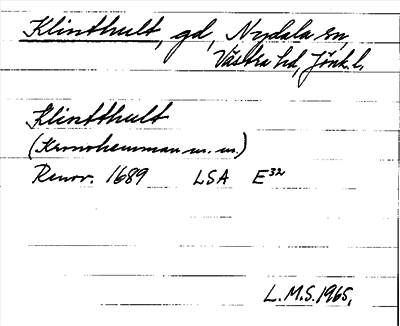 Klinthult, gd, Nydala sn,
Västra hd, Jönk. l.
Klintthult
(Kronohemman m. m.)
Renov. 1689 LSA E³²
L.M.S. 1965,